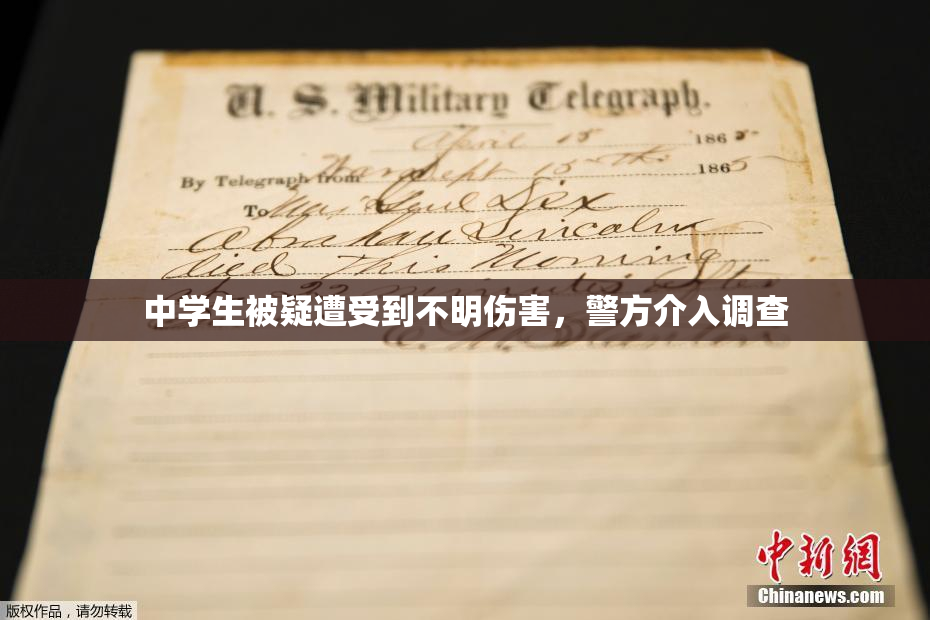 U. S. Military Telegraph.
April 15 1865
By Telegraph from War Dept 15th 1865
To Maj Genl Dix
Abraham Lincoln
died This Morning
22 minutes after
中学生被疑遭受到不明伤害，警方介入调查
中新網
Chinanews.com
版权作品，请勿转载